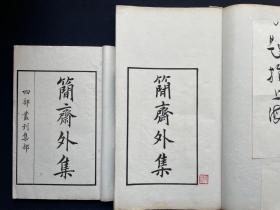 簡齋外集
四部叢刊集部
簡齋外集